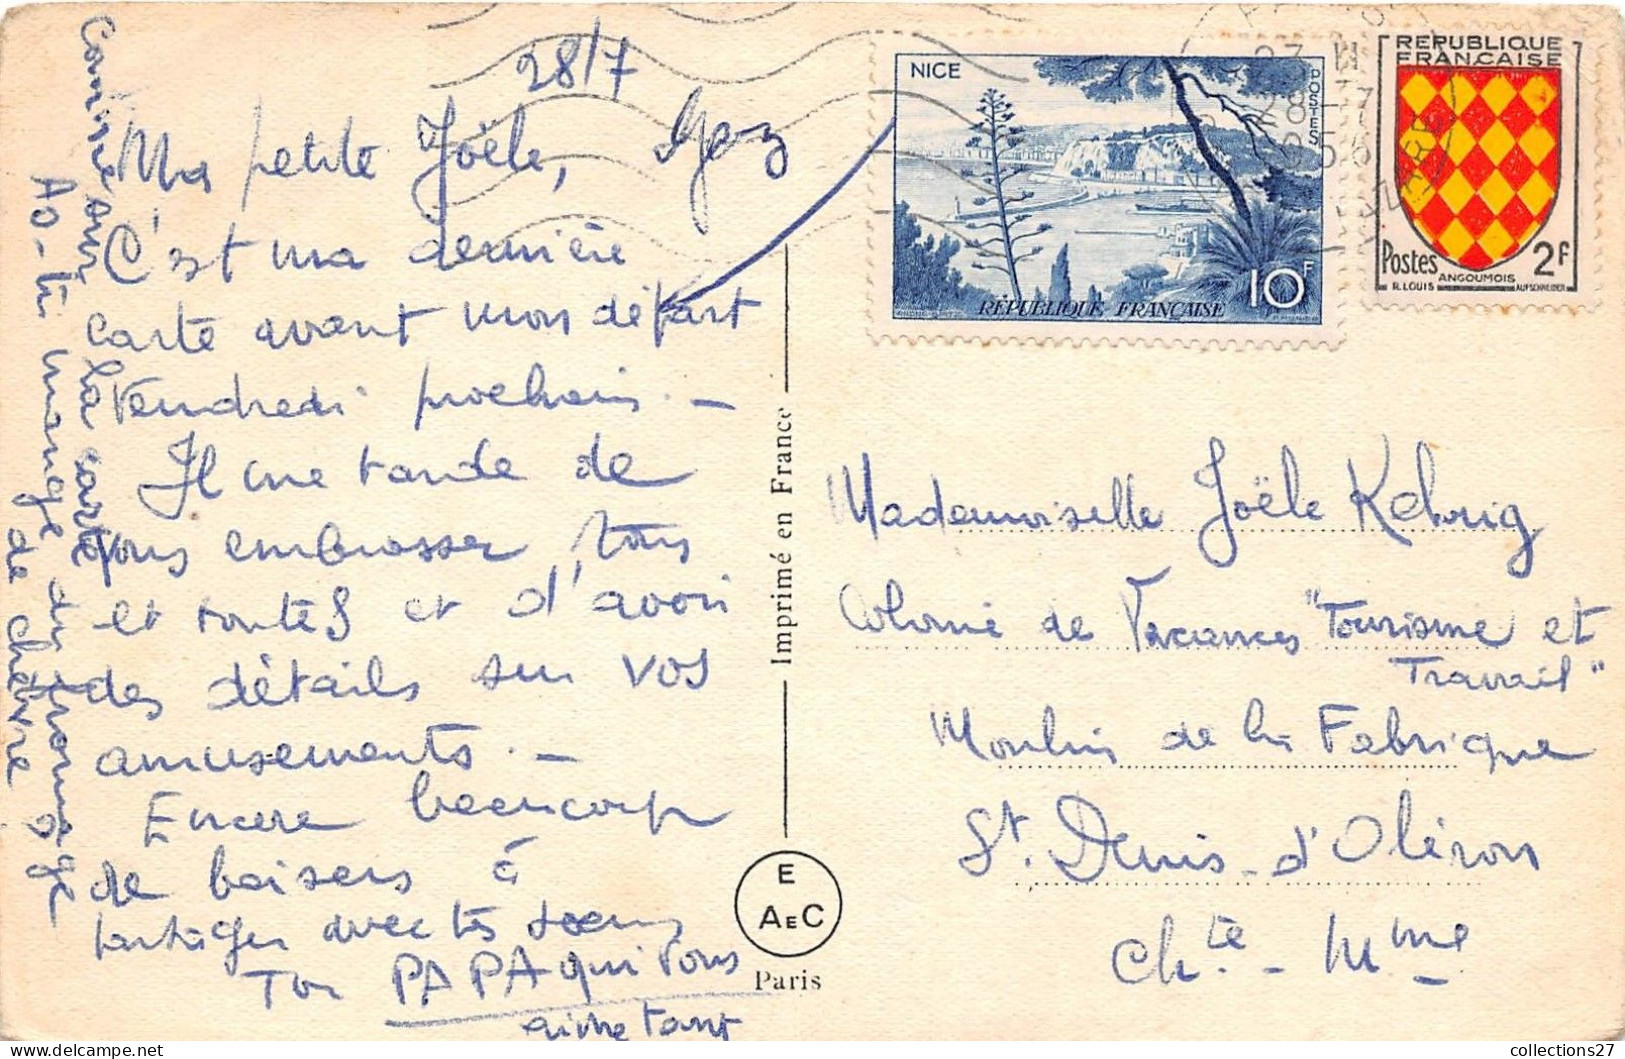 28/7
Ma petite Joële,
C'est ma dernière
carte avant mon départ
Vendredi prochain. -
Il me tarde de
vous embrasser, tous
et toutes et d'avoir
des détails sur vos
amusements. -
Encore beaucoup
de baisers à
partager avec tes soeurs
Ton PAPA qui vous
aime tant
Comme sur la carte
As-tu mangé du fromage
de chèvre ?
NICE
POSTES
10F
RÉPUBLIQUE FRANÇAISE
REPUBLIQUE
FRANÇAISE
Postes
2F
ANGOUMOIS
R. LOUIS
AUFSCHNEIDER
28-7
Imprimé en France
E
AEC
Paris
Mademoiselle Joële Kehrig
Colonie de Vacances "Tourisme et
Travail"
Moulin de la Fabrique
St. Denis-d'Oléron
Chte-Mme
collections27